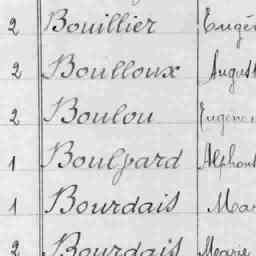 2 Bouillier Eugén
2 Boulloux August
2 Boulou Eugène
1 Boulfard Alphons
1 Bourdais Mar
2 Bourdais Marie